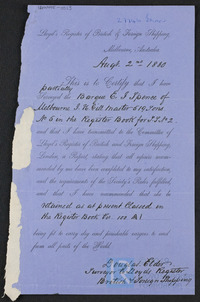 Lloyd's Register of British & Foreign Shipping,
Melbourne, Australia
Augt. 2nd 1880
This is to Certify that I have
partially
Surveyed the Barque E. J. Spence of
Melbourne
Master 519 Tons
No 5 in the Register Book for
and that I have transmitted to the Committee of
Lloyd's Register of British and Foreign Shipping,
London, a Report, stating that all repairs recommended
by me have been completed to my satisfaction,
and the requirements of the Society's Rules fulfilled,
and that I have recommended that she be
retained as at present classed in
the Register Book to 100 A1
being fit to carry dry and perishable cargoes to and
from all parts of the World.
Douglas Elder
Surveyor to Lloyds Register
British & Foreign Shipping